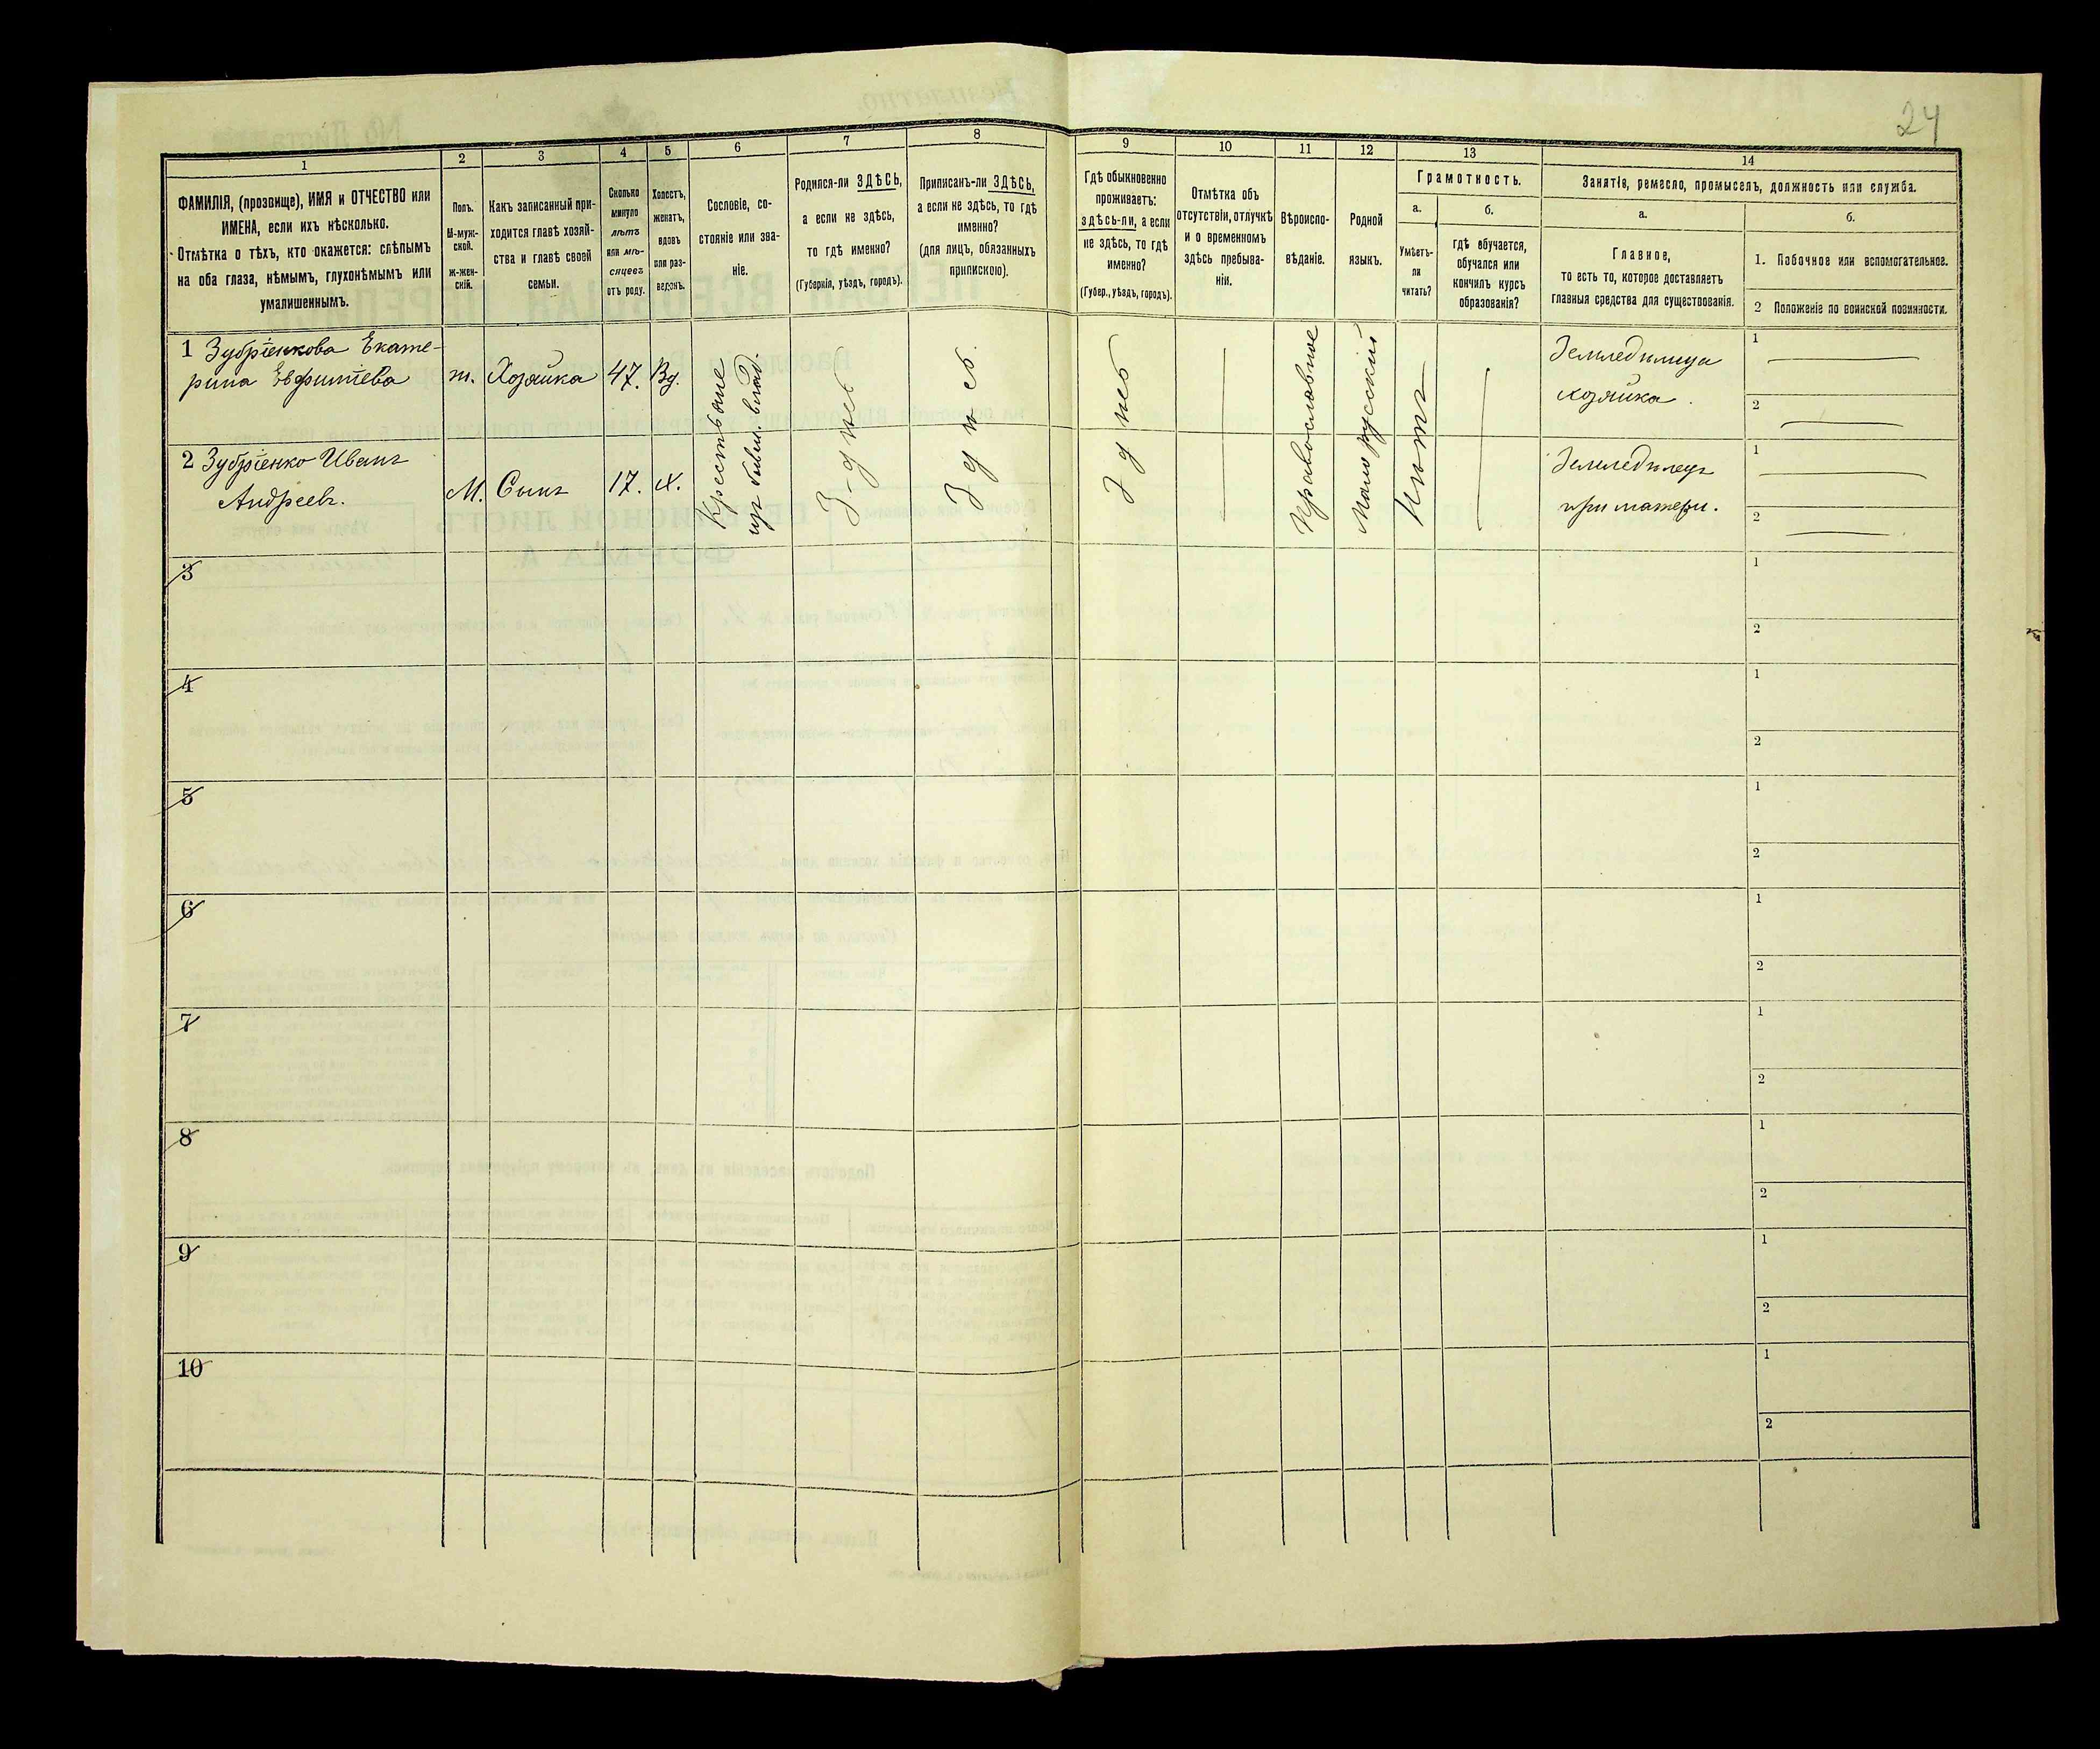 24
1
2
3
4
5
6
7
8
9
10
11
12
13
14
ФАМИЛІЯ, (прозвище), ИМЯ и ОТЧЕСТВО или
ИМЕНА, если ихъ нѣсколько.
Отмѣтка о тѣхъ, кто окажется: слѣпымъ
на оба глаза, нѣмымъ, глухонѣмымъ или
умалишеннымъ.
Полъ.
М-муж-
ской.
Ж-жен-
скій.
Какъ записанный при-
ходится главѣ хозяй-
ства и главѣ своей
семьи.
Сколько
минуло
лѣтъ
или мѣ-
сяцевъ
отъ роду.
Холостъ,
женатъ,
вдовъ
или раз-
веденъ.
Сословіе, со-
стояніе или зва-
ніе.
Родился-ли ЗДѢСЬ,
а если не здѣсь,
то гдѣ именно?
(Губернія, уѣздъ, городъ).
Приписанъ-ли ЗДѢСЬ,
а если не здѣсь, то гдѣ
именно?
(для лицъ, обязанныхъ
припискою).
Гдѣ обыкновенно
проживаетъ:
здѣсь-ли, а если
не здѣсь, то гдѣ
именно?
(Губер., уѣздъ, городъ).
Отмѣтка объ
отсутствіи, отлучкѣ
и о временномъ
здѣсь пребыва-
ніи.
Вѣроиспо-
вѣданіе.
Родной
языкъ.
Грамотность.
а.
Умѣетъ-
ли
читать?
б.
гдѣ обучается,
обучался или
кончилъ курсъ
образованія?
Занятіе, ремесло, промыселъ, должность или служба.
а.
Главное,
то есть то, которое доставляетъ
главныя средства для существованія.
б.
1. Побочное или вспомогательное.
2 Положеніе по воинской повинности.
1 Зубріенкова Екате-
рина Евфимiева
ж. Хозяйка 47. Вд.
Крестьяне
изъ бывш. влад.
Здѣсь
Здѣсь
Здѣсь
Православное
Малорусский
Нѣтъ
Земледѣлица
хозяйка.
1
2
2 Зубріенко Иванъ
Андреевъ.
М. Сынъ 17. Х.
Земледѣлецъ
при матери.
1
2
3
1
2
4
1
2
5
1
2
6
1
2
7
1
2
8
1
2
9
1
2
10
1
2